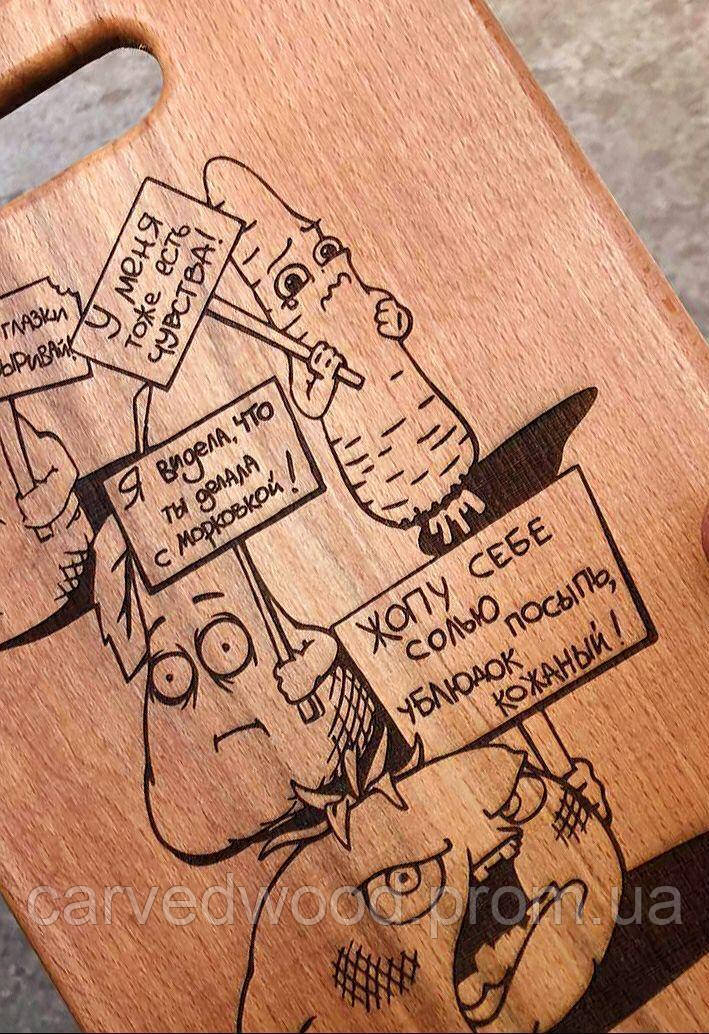 ГЛАЗКИ
У МЕНЯ
ТОЖЕ ЕСТЬ
ЧУВСТВА!
Я ВИДЕЛА, ЧТО
ТЫ ДЕЛАЛА
С МОРКОВКОЙ!
ЖОПУ СЕБЕ
СОЛЬЮ ПОСЫПЬ,
УБЛЮДОК
КОЖАНЫЙ!
carvedwood.prom.ua